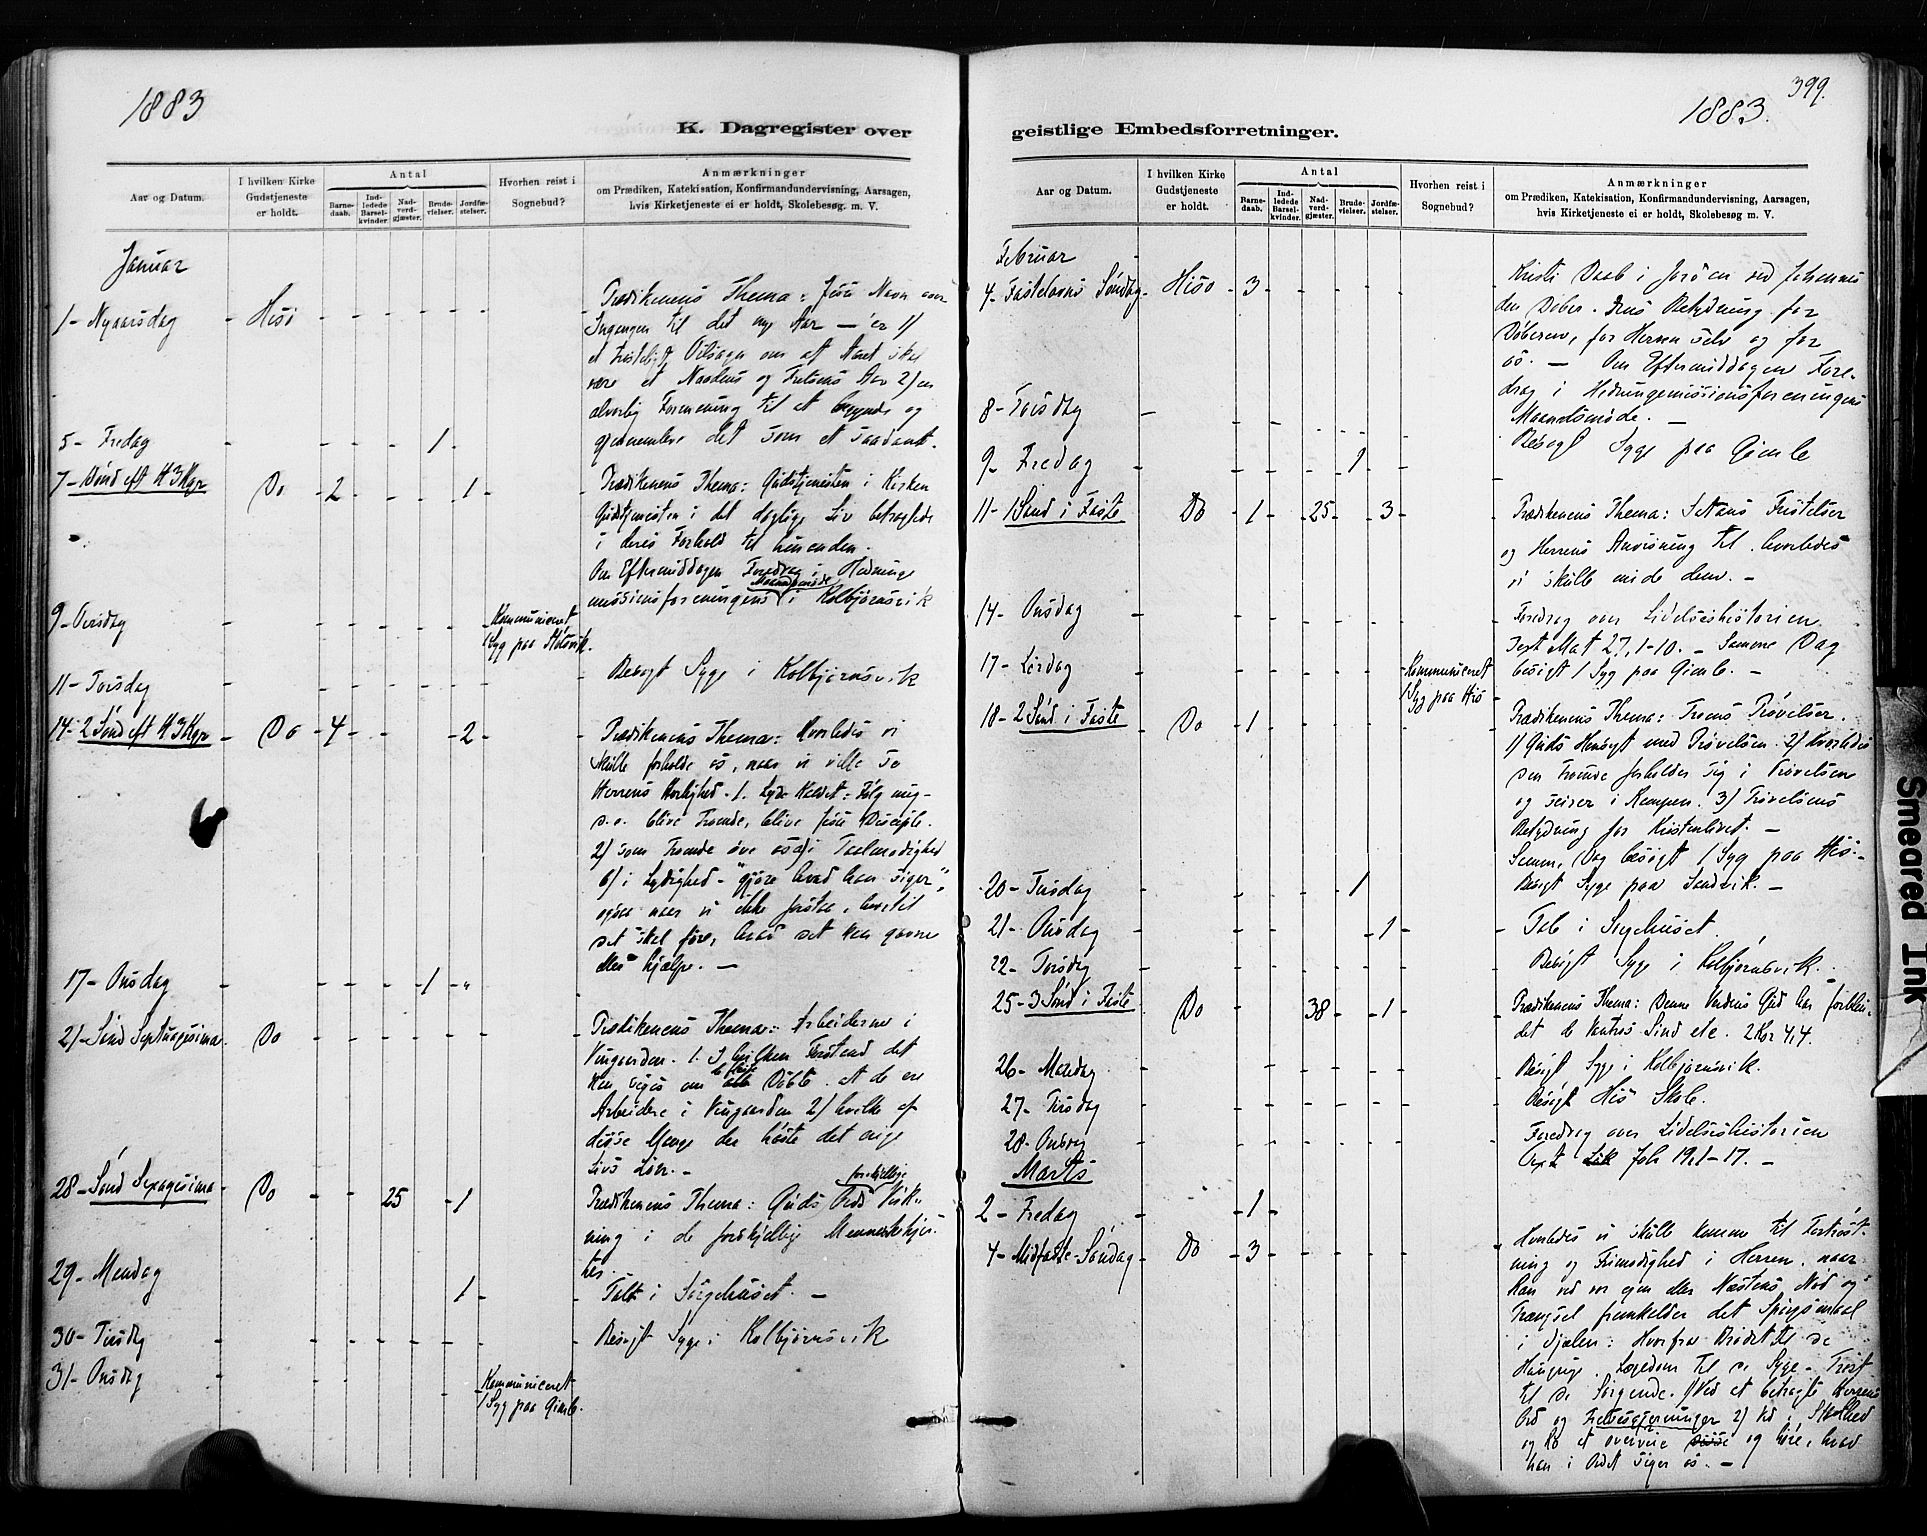 1883
K. Dagregister over
Aar og Datum.
I hvilken Kirke Gudstjeneste er holdt.
Antal
Barnedaab.
Indledede Barselkvinder.
Nadverdgjæster.
Brudevielser.
Jordfæstelser.
Hvorhen reist i Sognebud?
Anmærkninger
om Prædiken, Katekisation, Konfirmandundervisning, Aarsagen,
hvis Kirketjeneste ei er holdt, Skolebesøg m. V.
Januar
1 - Nyaarsdag - Hisö - - - - - -
Prædikenens Thema: Jesu Navn over
Indgangen til det nye Aar — er 1)
et Tilsagn om at Aaret skal
være et Naadens og Frelsens Aar 2) en
alvorlig Formaning til at begynde og
gjennemleve det som et saadant.
5 - Fredag - - - - 1 -
7 - Sönd eft H 3 Kgr Do - 2 - - - 1 -
Prædikenens Thema: Gudstjenesten i Kirken
Gudstjenesten i det daglige Liv betragtede
i deres Forhold til hinanden.
Om Eftermiddagen Foredrag i Hedninge
missionsforeningens Maanedsmöde i Kolbjörnsvik
9 - Tirsdag - - - - - - Kommuniceret
1 Syg paa
11 - Torsdag - - - - - - Besögt Syge i Kolbjörnsvik
14 - 2 Sönd eft H 3 Kgr - Do - 4 - - - 2 -
Prædikenens Thema: Hvorledes vi
skulle forholde os, naar vi ville se
Herrens Herlighed. 1. Lyde Kaldet: Fölg mig -
d.e. blive Troende, blive Jesu Disciple.
2) som Troende öve os a) i Taalmodighed
b) i Lydighed - "gjöre hvad han siger",
ogsaa naar vi ikke forstaa, hvortil
det skal före, hvad det kan gavne
eller hjælpe. —
17 - Onsdag - - - - 1 - "
21 - Sönd Septuagesima - Do - - - - - -
Prædikenens Thema: Arbeiderne i
Vingaarden. 1. I hvilken Forstand det
kan siges om de fleste Döbte at de ere
Arbeidere i Vingaarden 2) hvilke af
disse Mange der höste det evige
Livs Lön. -
28 - Sönd Sexagesima - Do - - 25 - 1 -
Prædikenens Thema: Guds Ords forskjellige Virk-
ning i de forskjellige Menneskehjer-
ter.
29 - Mandag 1 - - Talt i Sörgehuset. —
30 - Tirsdg - - - - - - - Besögt Syge i Kolbjörnsvik
31 - Onsdag - - - - - - Kommuniceret
1 Syg paa Gimle.
399.
1883.
geistlige Embedsforretninger.
Aar og Datum.
I hvilken Kirke Gudstjeneste er holdt.
Antal
Barnedaab.
Indledede Barselkvinder.
Nadverdgjæster.
Brudevielser.
Jordfæstelser.
Hvorhen reist i Sognebud?
Anmærkninger
om Prædiken, Katekisation, Konfirmandundervisning, Aarsagen,
hvis Kirketjeneste ei er holdt, Skolebesøg m. V.
Februar
4 - Fastelavns Söndag - Hisö - 3 - - - - -
Kristi Daab i Jordan ved Johannes
den Döber. Dens Betydning for
Döberen, for Herren selv og for
os. — Om Eftermiddagen Fore-
drag i Hedningemissionsforeningens
Maanedsmöde. —
8 - Torsdag - - - - - - Besögt Syge paa Gimle
9 - Fredag - - - - 1 - - -
11 - 1 Sönd i Faste - Do - 1 - 25 - 3 - -
Prædikenens Thema: Satans Fristelser
og Herrens Anvisning til, hvorledes
vi skulle möde dem. -
14 - Onsdag - - - - - - -
Foredrag over Lidelseshistorien
Text Mat 27, 1-10. - Samme Dag
besögt 1 Syg paa Gimle. -
17 - Lördag - - - - - - - Kommuniceret
1 Syg paa Hisö
18 - 2 Sönd i Faste - Do - 1 - - - - -
Prædikenens Thema: Troens Prövelser.
1) Guds Hensigt med Prövelsen. 2) Hvorledes
den Troende forholder sig i Prövelsen
og seirer i Kampen. 3) Prövelsens
Betydning for Kristenlivet. —
Samme Dag besögt 1 Syg paa His.-
20 - Tirsdag - - - - 1 - - Besögt Syge paa Sandvik. —
21 - Onsdag - - - - - 1 - - Tale i Sörgehuset.
22 - Torsdg - - - - - - - Besögt Syge i Kolbjörnsvik.
25 - 3 Sönd i Faste - Do - - 38 - 1 - -
Prædikenens Thema: Denne Verdens Gud har forblin-
det de Vantros Sind etc. 2 Kor 4,4.
26 - Mandag - - - - - - - Besögt Syge i Kolbjörnsvik.
27 - Tirsdag - - - - - - - Besögt Hisö Skole.
28 - Onsdag - - - - - - - Foredrag over Lidelseshistorien
Text Joh 19,1-17. -
Marts
2 - Fredag - - 1 -
4 - Midfaste Söndag - Do - 3 - - - - -
Hvorledes vi skulle komme til Fortröst-
ning og Frimodighed i Herren, naar
han ved vor egen eller Næstens Nöd og
Trængsel fremkalder det Spörgsmaal
i Sjælen: Hvorfra Bröd til de
Hungrige. Lægedom til de Syge - Tröst
til de Sörgende. 1) Ved at betragte Herrens
Ord og Frelsesgjerninger 2) ved i Stilhed
og Ro at overveie disse og höre, hvad
han i Ordet siger os. —
Smeared Ink